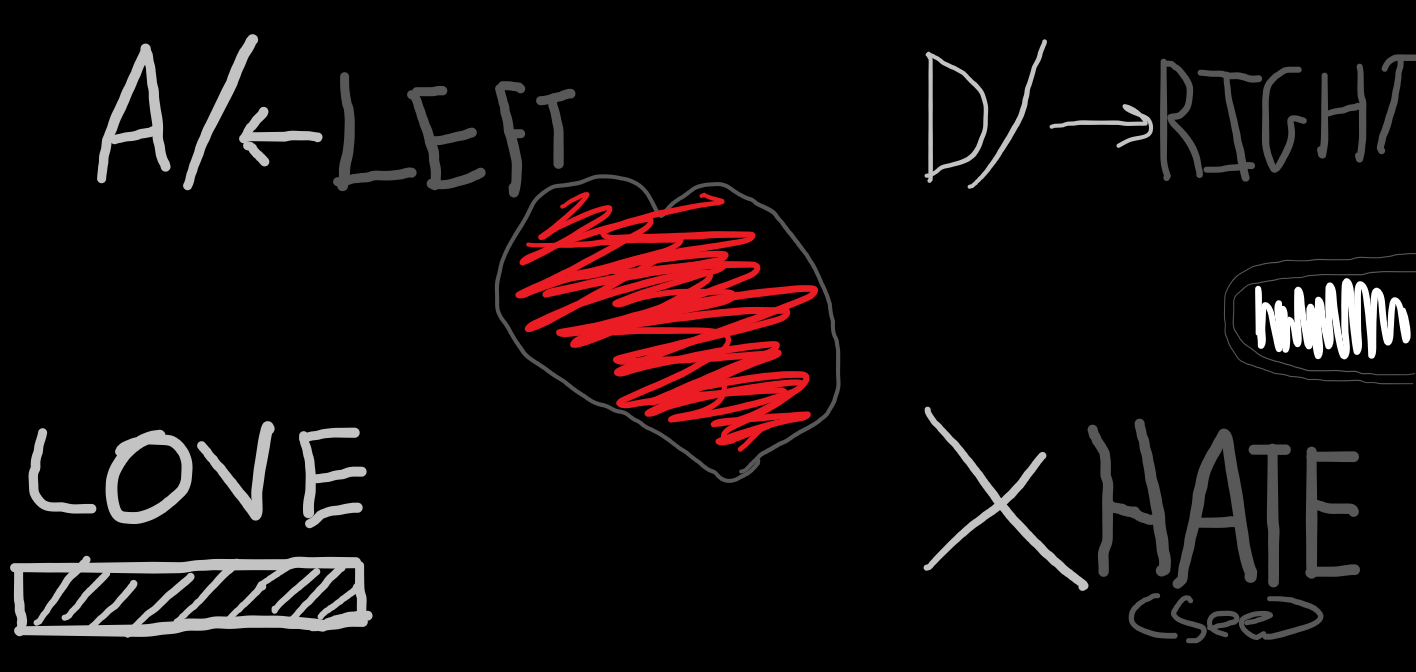 A/← LEFT
D/→ RIGHT
LOVE
X HATE
(See)